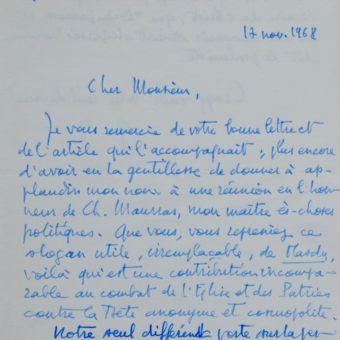 17 nov. 1968
Cher Monsieur,
Je vous remercie de votre bonne lettre et
de l'article qui l'accompagnait ; plus encore
d'avoir eu la gentillesse de donner à ap-
plaudir mon nom à une réunion en l'hon-
neur de Ch. Maurras, mon maître ès-choses
politiques. Que vous, vous repreniez ce
slogan utile, irremplaçable, de
voilà qui est une contribution incompa-
rable au combat de l'Eglise et des Patries
contre la Bête anonyme et cosmopolite.
Notre seul différend porte sur la